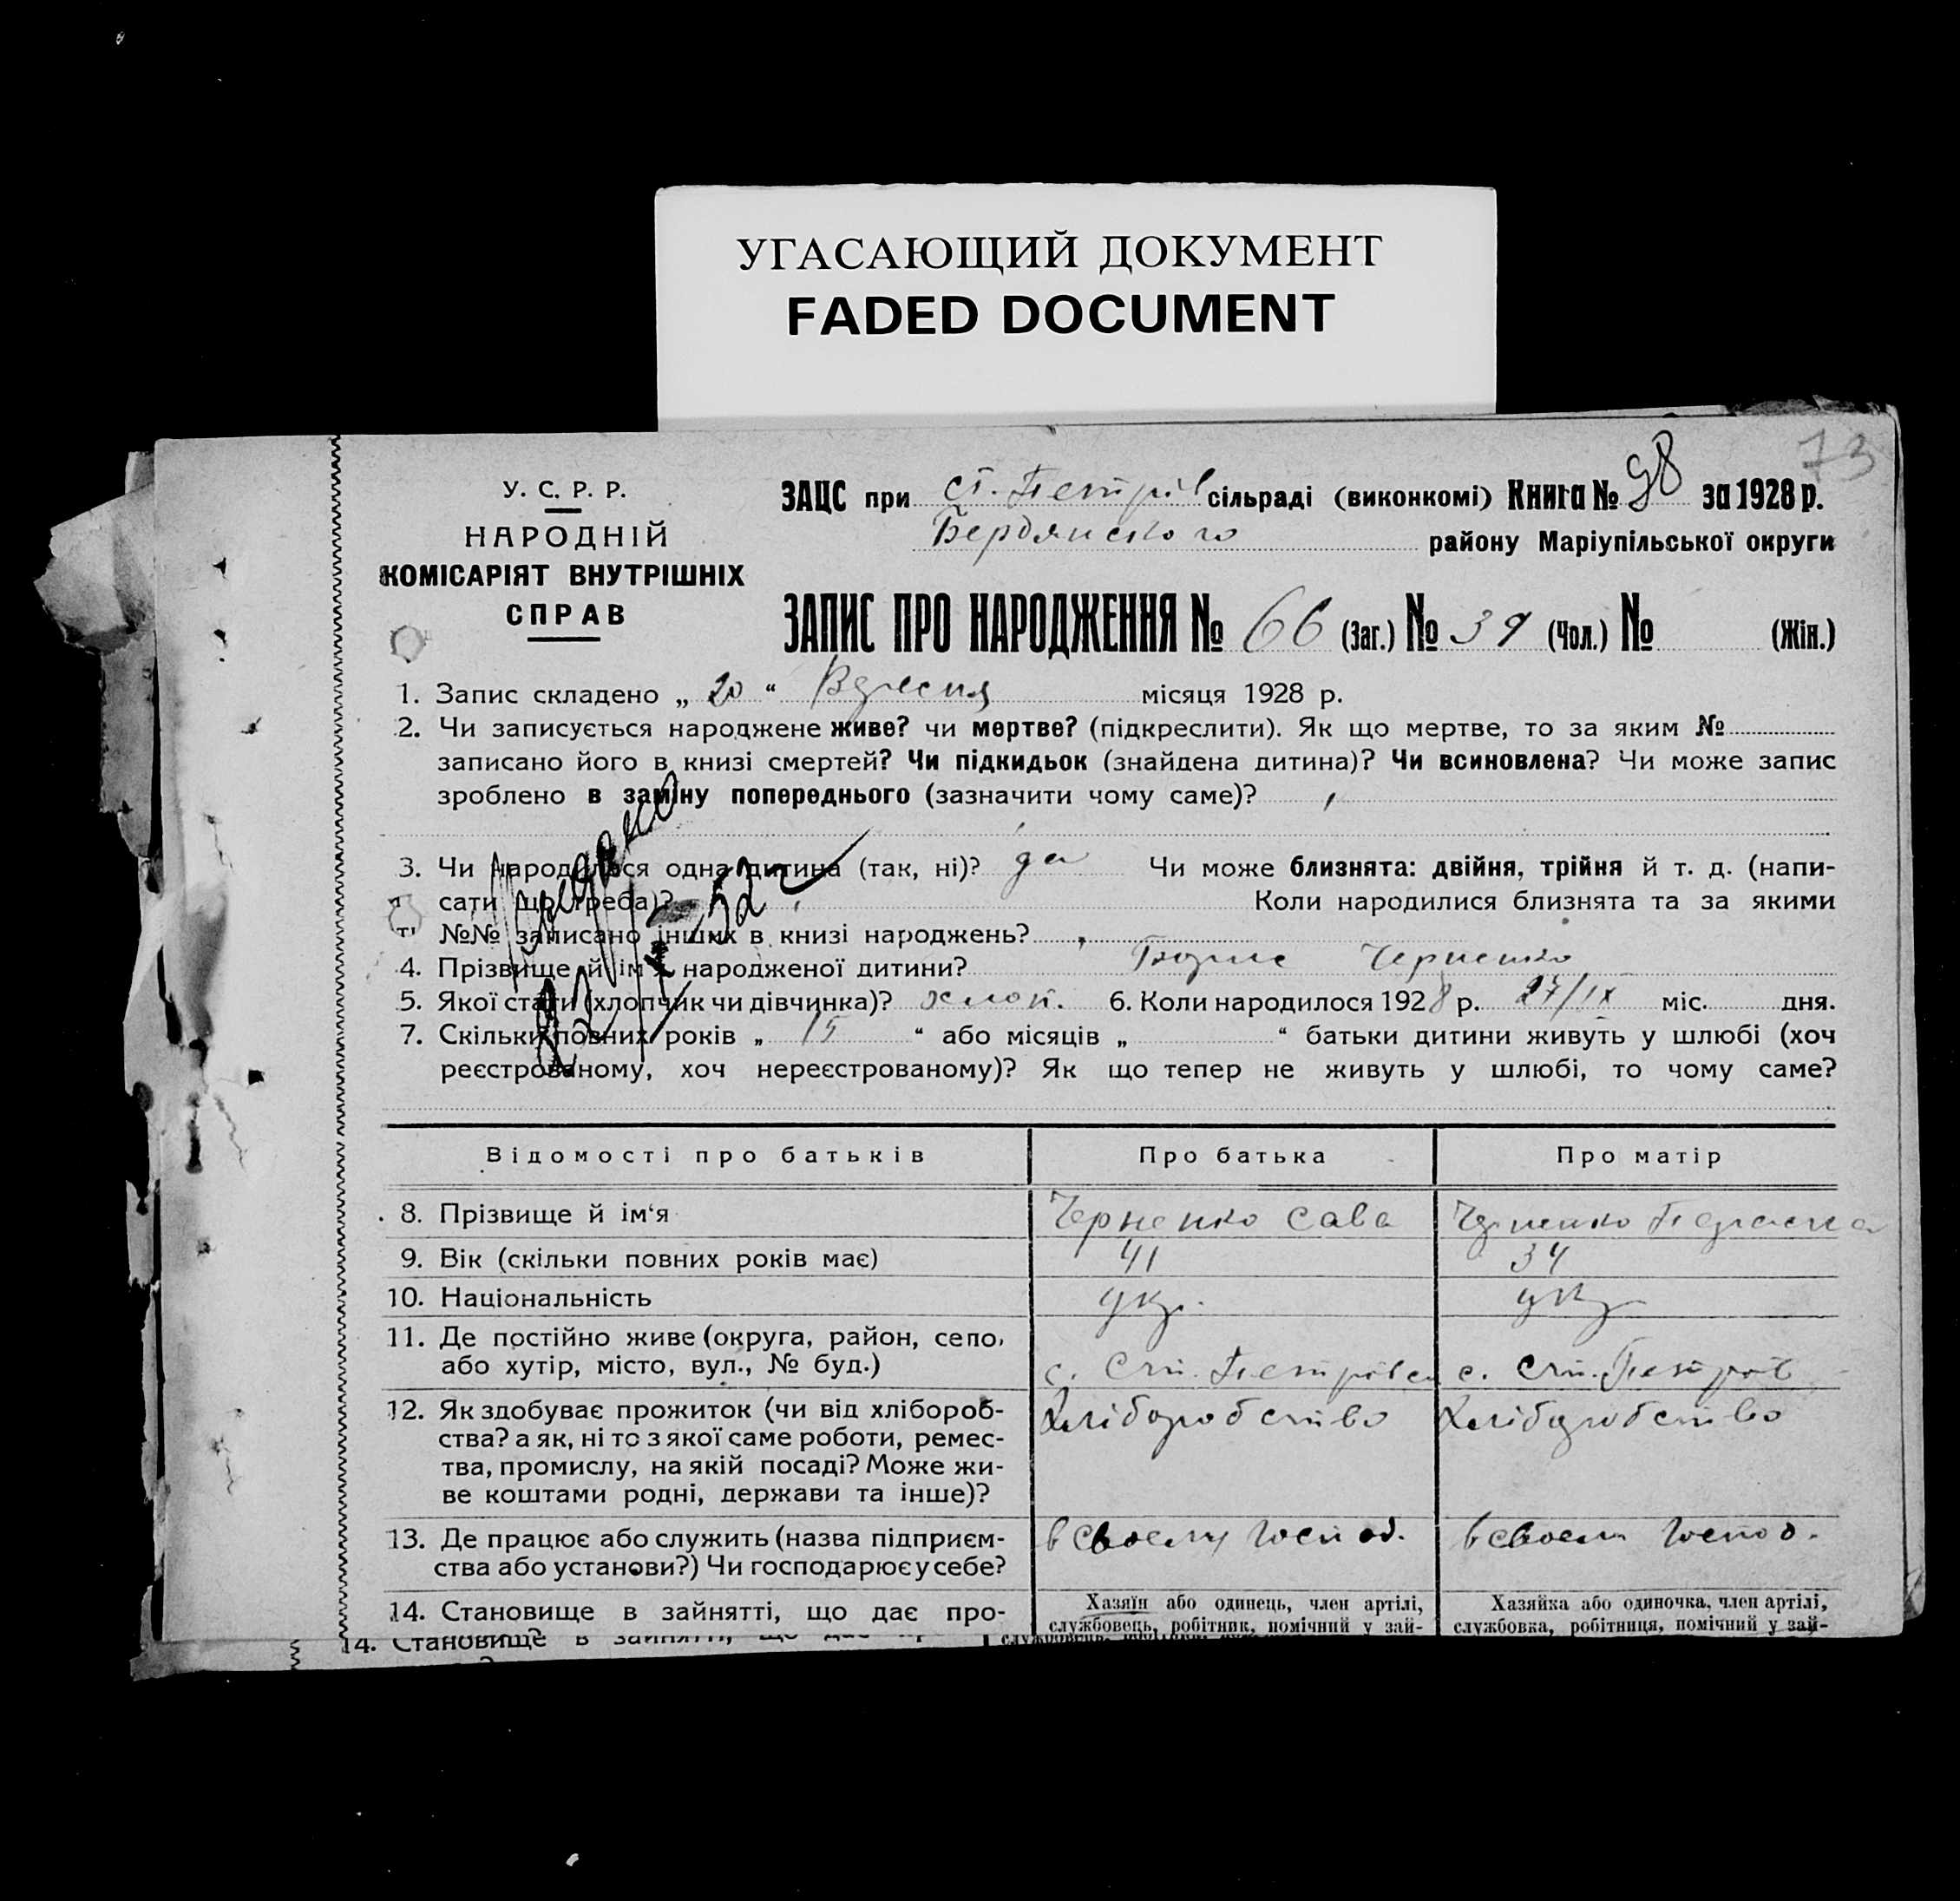 УГАСАЮЩИЙ ДОКУМЕНТ
FADED DOCUMENT
73
У. С. Р. Р.
НАРОДНІЙ
КОМІСАРІЯТ ВНУТРІШНІХ
СПРАВ
ЗАЦС при ст. Петрів сільраді (виконкомі) Книга № 98 за 1928 р.
Бердянского району Маріупільської округи
ЗАПИС ПРО НАРОДЖЕННЯ № 66 (Заг.) № 39 (Чол.) № (Жін.)
1. Запис складено „ 20 “ Вересня місяця 1928 р.
2. Чи записується народжене живе? чи мертве? (підкреслити). Як що мертве, то за яким №
записано його в книзі смертей? Чи підкидьок (знайдена дитина)? Чи всиновлена? Чи може запис
зроблено в заміну попереднього (зазначити чому саме)?
3. Чи народилося одна дитина (так, ні)? да Чи може близнята: двійня, трійня й т. д. (напи-
сати що треба)? Коли народилися близнята та за якими
№№ записано інших в книзі народжень?
4. Прізвище й ім'я народженої дитини? Борис Черненко
5. Якої стати (хлопчик чи дівчинка)? хлоп. 6. Коли народилося 1928 р. 27/IX міс. дня.
7. Скільки повних років „ 15 “ або місяців „ “ батьки дитини живуть у шлюбі (хоч
реєстрованому, хоч нереєстрованому)? Як що тепер не живуть у шлюбі, то чому саме?
Відомості про батьків Про батька Про матір
8. Прізвище й ім‘я Черненко Сава Черненко
9. Вік (скільки повних років має) 41 34
10. Національність укр. укр
11. Де постійно живе (округа, район, село,
або хутір, місто, вул., № буд.) с. Ст. Петрівка с. Ст. Петрів
12. Як здобуває прожиток (чи від хлібороб- Хліборобство Хліборобство
ства? а як, ні то з якої саме роботи, ремес-
тва, промислу, на якій посаді? Може жи-
ве коштами родні, держави та інше)?
13. Де працює або служить (назва підприєм- в своему господ. в своем господ.
ства або установи?) Чи господарює у себе?
14. Становище в зайнятті, що дає про- Хазяїн або одинець, член артілі, Хазяйка або одиночка, член артілі,
службовець, робітник, помічний у зай- службовка, робітниця, помічний у зай-
14. Становище в зайнятті, що дає